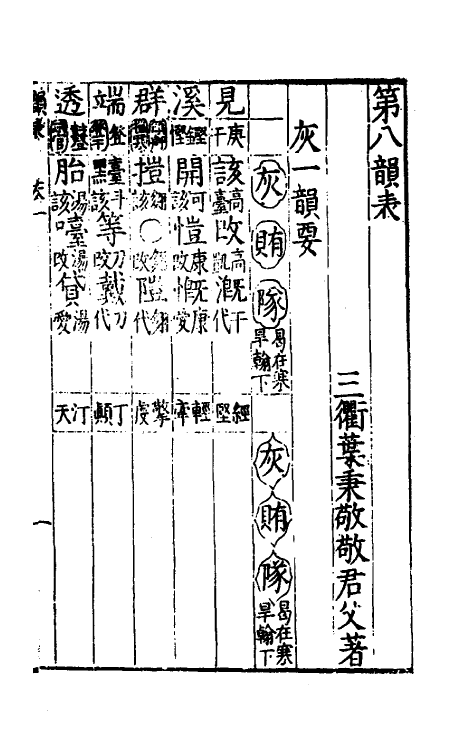 第八韻表
三衢葉秉敬敬君父著
灰一韻要
一 灰 賄 隊 曷在寒旱翰下 灰 賄 隊 曷在寒旱翰下
見 庚干 該 高臺 改 高凱 溉 干代 經堅
溪 鏗慳 開 可該 愷 康改 慨 康愛 輕牽
群 㨟 該 〇 改 隑 代 擎虔
端 登 臺 斗該 等 刀改 戴 刀代 丁顛
透 胎 湯該 嚉 湯改 貸 湯愛 汀天
一